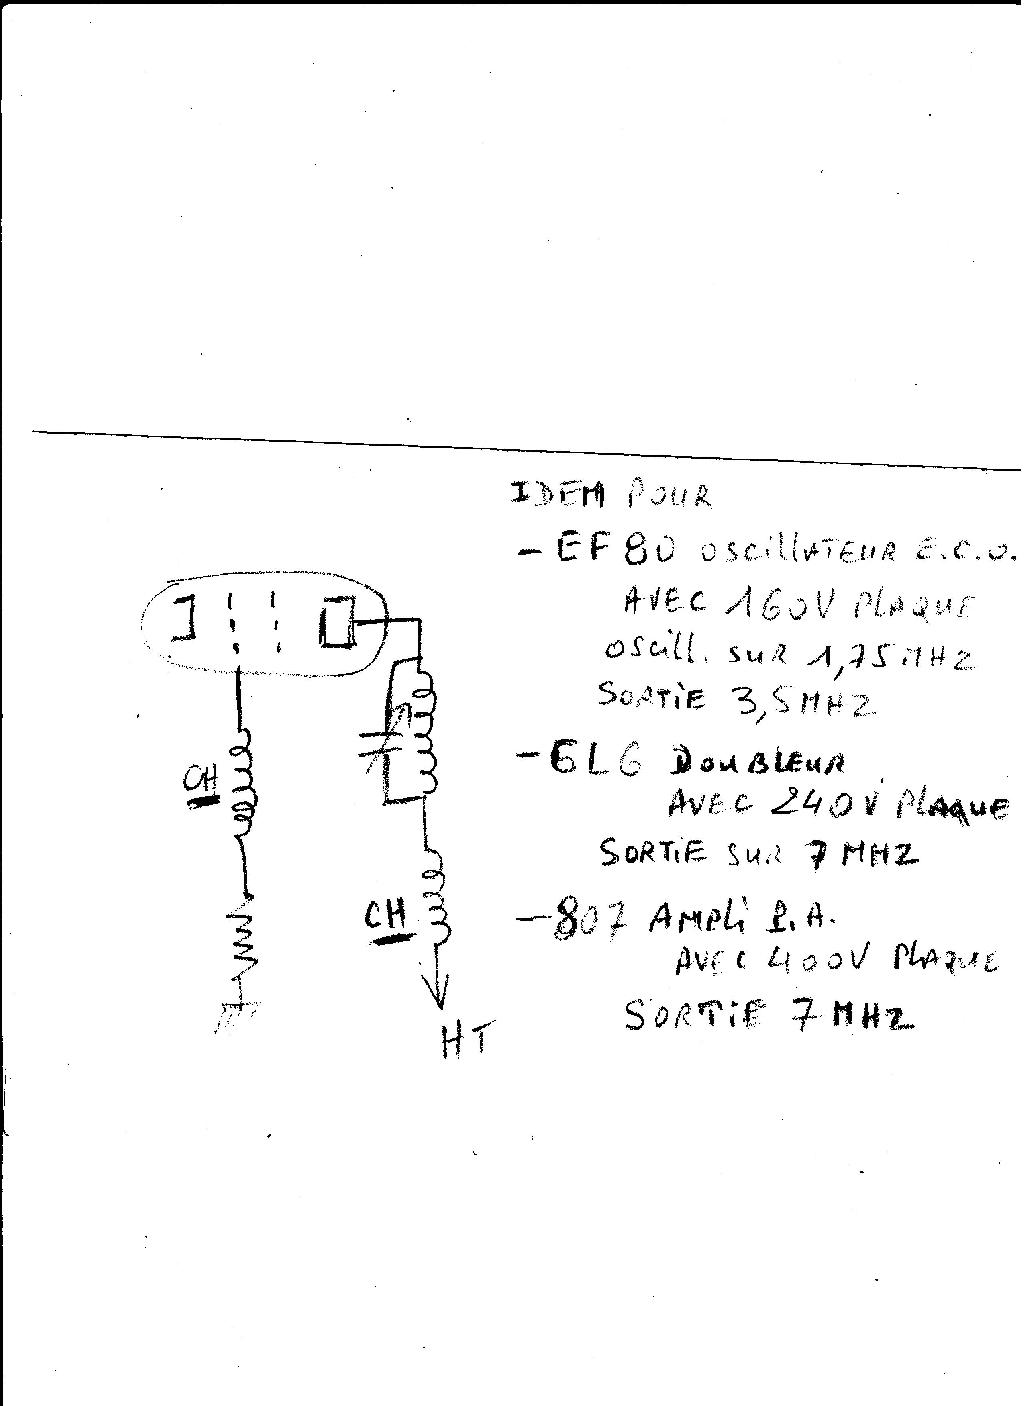 IDEM POUR
- EF80 OSCILLATEUR E.C.O.
AVEC 160V PLAQUE
OSCILL. SUR 1,75MHZ
SORTIE 3,5MHZ
- 6L6 DOUBLEUR
AVEC 240V PLAQUE
SORTIE SUR 7 MHZ
- 807 AMPLI P.A.
AVEC 400V PLAQUE
SORTIE 7 MHZ
CH
CH
HT